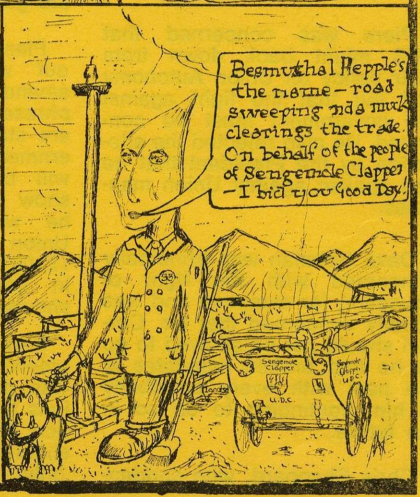 Besmuthal Hepple's
the name – road
sweeping nda muck
clearings the trade.
On behalf of the people
of Sengemole Clapper
– I bid you Good Day!
Sengemole
Clapper
U.D.C.
Clapper
U.D.C.